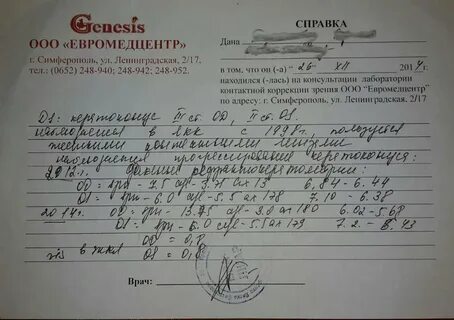 Genesis
ООО «ЕВРОМЕДЦЕНТР»
г. Симферополь, ул. Ленинградская, 2/17,
тел.: (0652) 248-940; 248-942; 248-952.
СПРАВКА
Дана
в том, что он (-а) " 26 " XII 2014 г.
находился (-лась) на консультации лаборатории
контактной коррекции зрения ООО «Евромедцентр»
по адресу: г. Симферополь, ул. Ленинградская, 2/17
DS: кератоконус III ст. OD, II ст. OS.
наблюдается в ЛКК с 1998г., пользуется
жесткими контактными линзами
наблюдается прогрессирование кератоконуса:
2012г. Данные рефрактокератометрии:
OD = sph - 7.5 cyl - 3.75 ax 13 6.84 - 6.44
OS = sph - 6.0 cyl - 5.5 ax 7.10 - 6.38
2014г. OD = sph - 13.75 cyl - 3.0 ax 180 6.02 - 5.68
OS = sph - 6.0 cyl - 5.5 ax 179 7.2 - 6.43
Vis в ЖКЛ OD = 0,8
OS = 0,8
Врач: